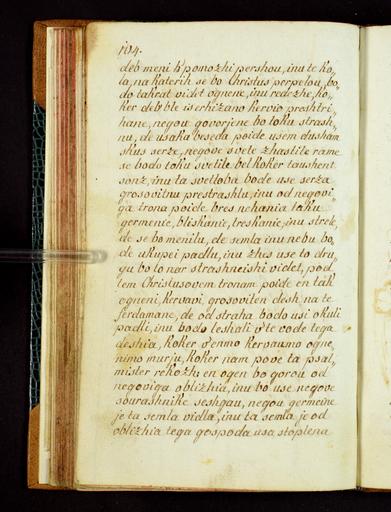 104.
deb meni k'pomozhi pershou, inu te ko,
la, na katerih se bo Christus perpelou, bo,
do takrat videt ognene, inu redezhe, ko,
ker deb ble iserhizano kervio preshtri,
hane, negou govorjene bo toku strash,
nu, de usaka beseda poide usem dusham
skus serze, negove svete zhastite rame
se bodo toku svetile bel koker taushent
sonz, inu ta svetloba bode use serza
grosovitnu prestrashla, inu od negovi,
ga trona poide bres nehania taku
germenie, bliskanie, treskanie, inu strele,
de se bo menilu, de semla inu nebu bo,
de ukupei padlu, inu zhes use to dru,
gu bo to nar strashneishi videt, pod
tem Christusovem tronam poide en tak
ogneni, kervavi, grosoviten desh, na te
ferdamane, de od straha bodo usi okuli
padli, inu bodo leshali v'te vode tega
deshia, koker v'enmo kervaumo ogne,
nimo murju, koker nam pove ta psal,
mister rekozh en ogen bo gorou od
negoviga oblizhia, inu bo use negove
sourashnike seshgau, negou germeine
je ta semla vidla, inu ta semla je od
oblizhia tega gospoda usa stoplena